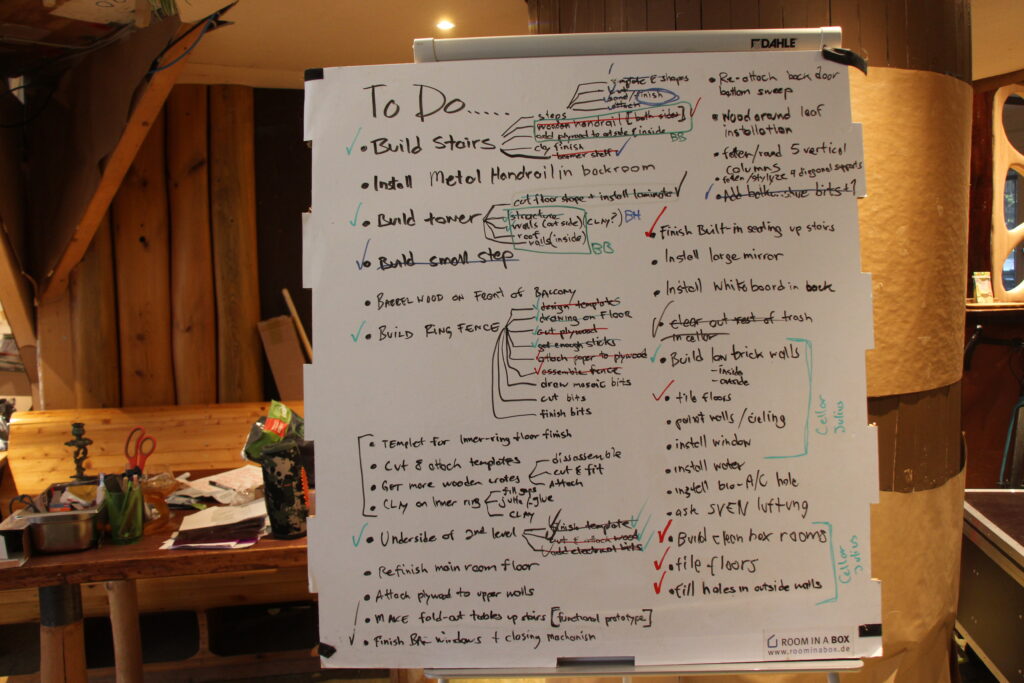 DAHLE
To Do.....
Build Stairs
steps
template & shapes
finish
attach
wooden handrail [both sides]
add plywood to outside & inside
BB
clay finish
corner shelf
Install Metal Handrail in backroom
Build tower
cut floor shape + install laminate
structure
walls (outside) (CLAY?) BH
roof
walls (inside)
BB
Build small step
BARREL WOOD ON FRONT OF BALCONY
BUILD RING FENCE
design templates
drawing on FLOOR
cut plywood
get enough sticks
attach paper to plywood
assemble fence
draw mosaic bits
cut bits
finish bits
TEMPLET for Inner-ring floor finish
Cut & attach templates
GET more wooden crates
disassemble
cut & fit
Attach
CLAY on Inner ring
fill gaps
glue
CLAY
Underside of 2nd level
finish template
cut & attach wood
add electrical bits
Refinish main room floor
Attach plywood to upper walls
MAKE fold-out tables up stairs [functional prototype]
Finish windows + closing mechanism
Re-attach back door
bottom sweep
Wood around loaf
installation
5 vertical
columns
4 diagonal supports
Add bits
Finish Built-in seating up stairs
Install large mirror
Install Whiteboard in back
clear out rest of trash
in cellar
Build low brick walls
- inside
- outside
tile floors
paint walls / cieling
install window
Cellar
Julius
install water
install bio-A/C hole
ask SVEN luftung
Build clean box rooms
tile floors
fill holes in outside walls
Cellar
Julius
ROOM IN A BOX
www.roominabox.de